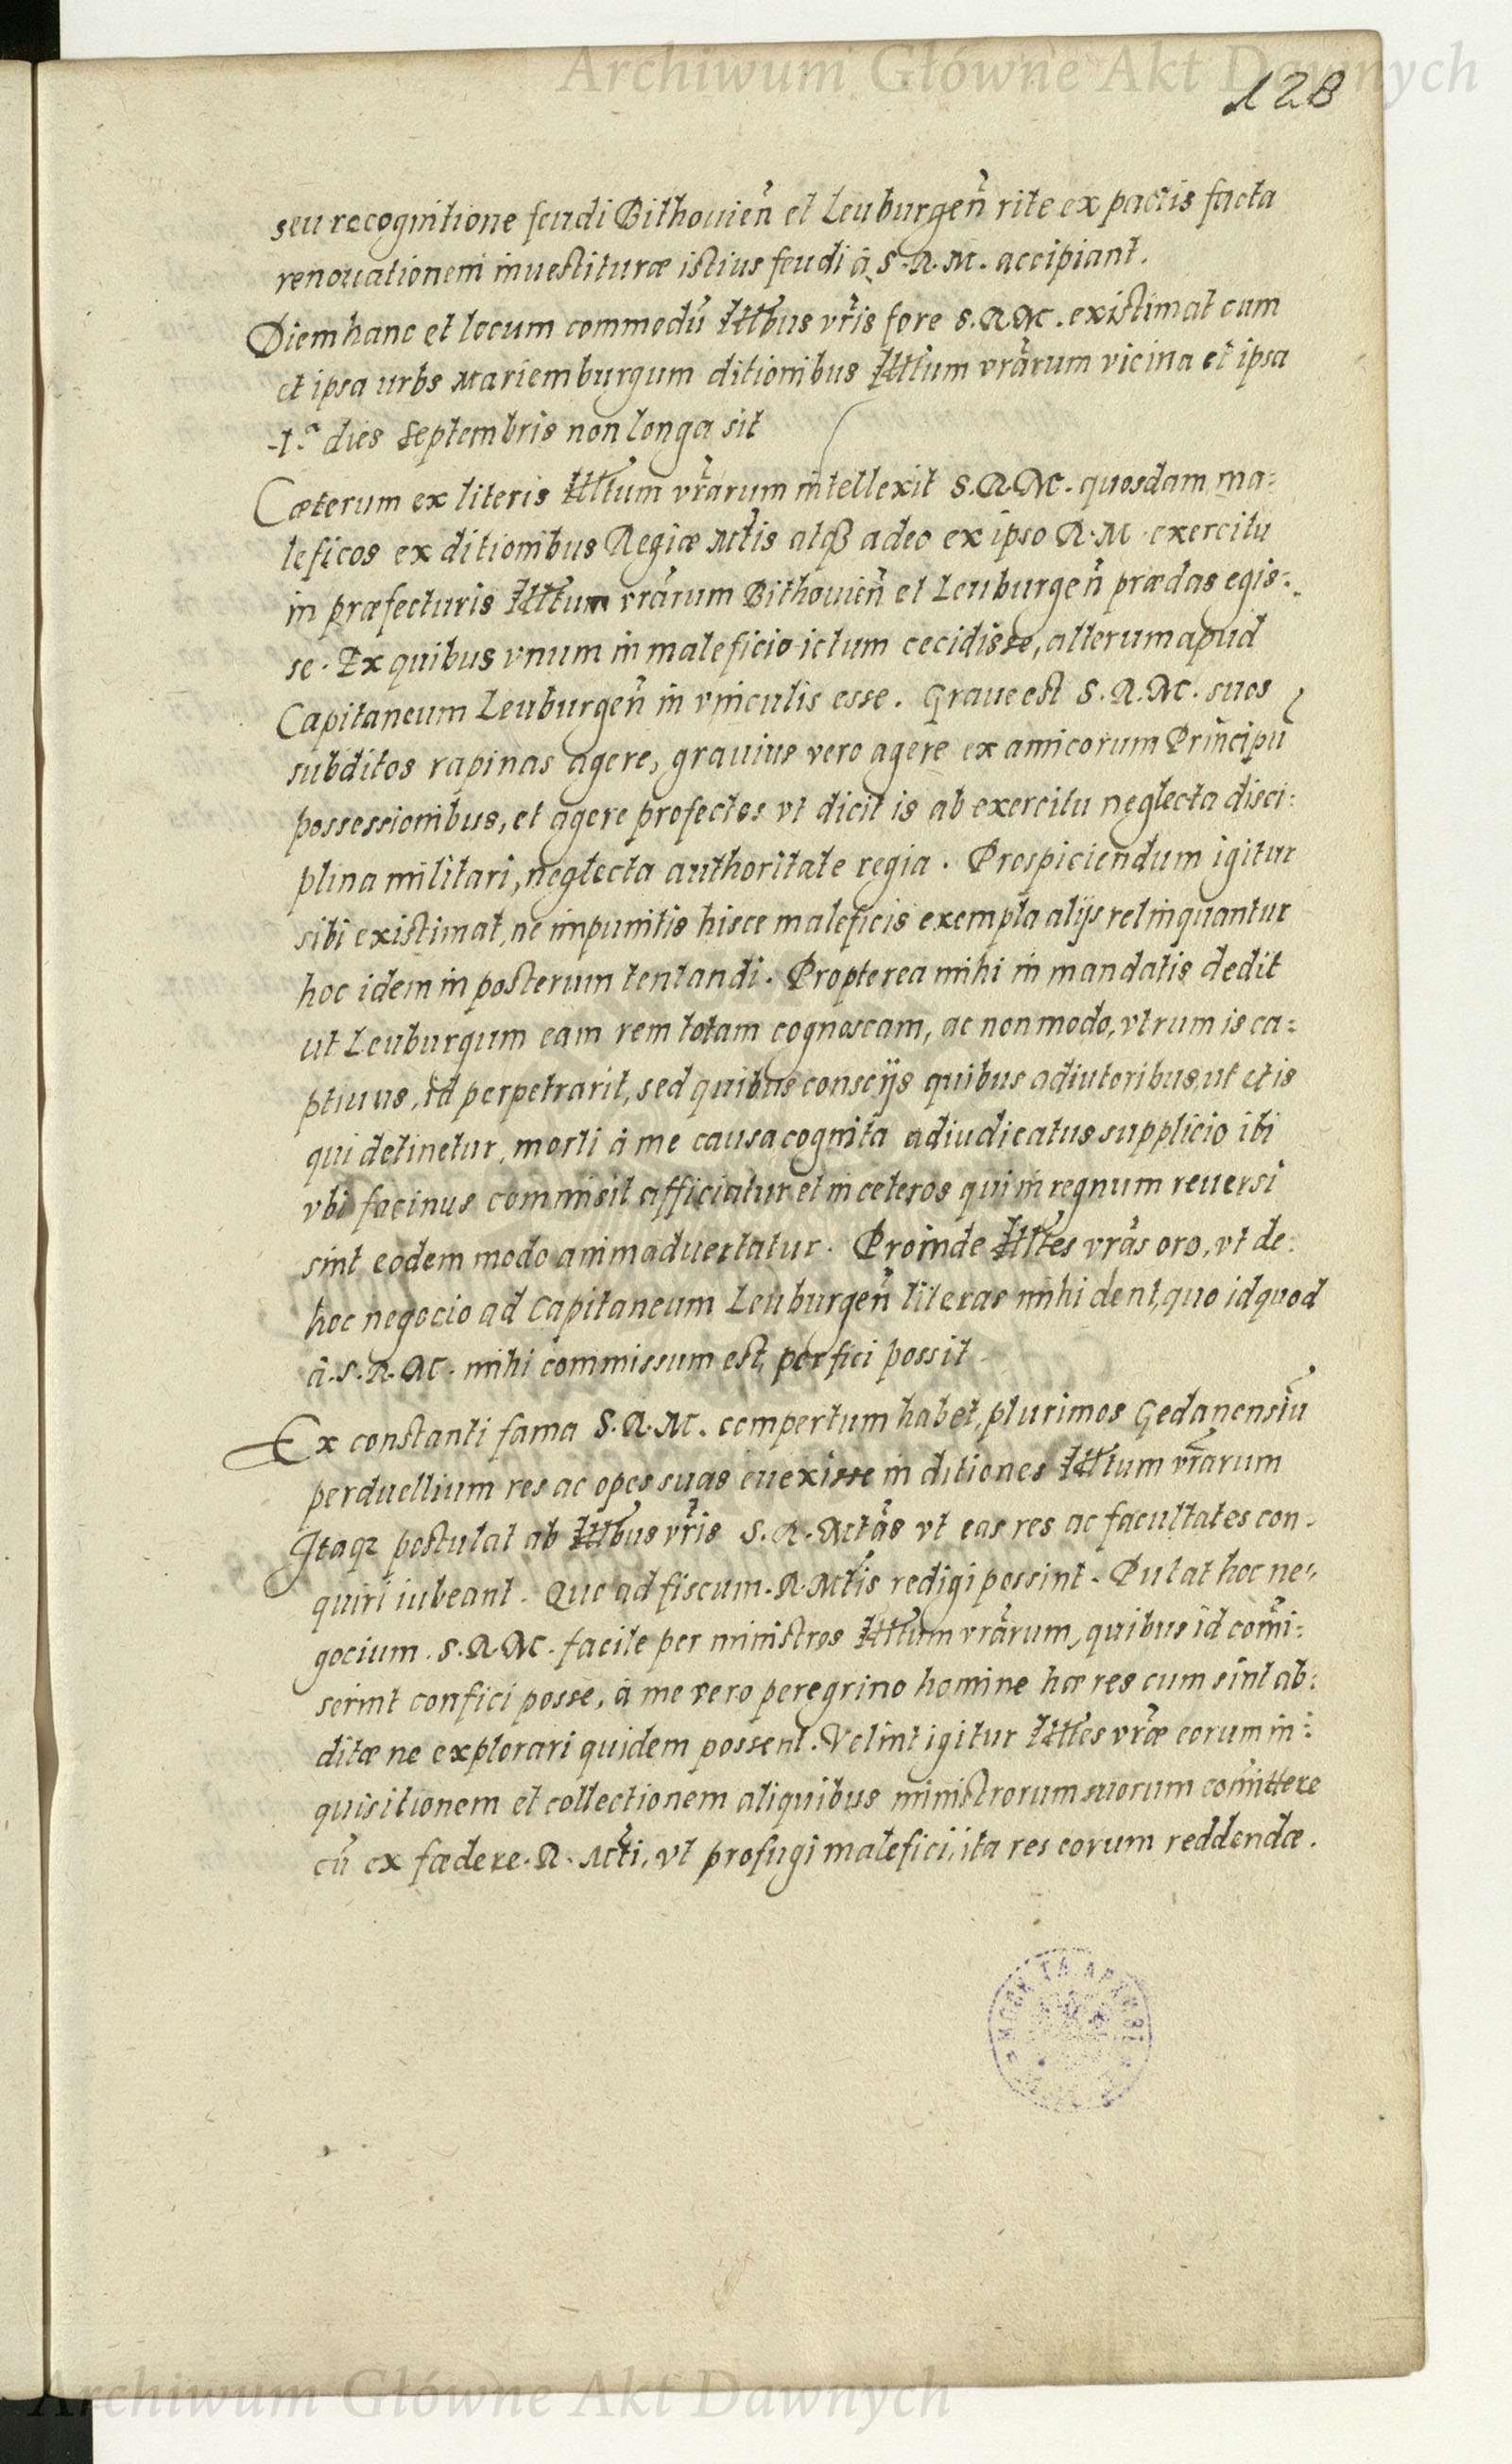 Archiwum Główne Akt Dawnych
128
seu recognitione feudi Bithouien̄ et Leuburgen̄ rite ex pactis facta
renouationem inuestituræ istius feudi à S. R. M. accipiant.
Diem hanc et locum commodū Illtbus vr̄is fore S. R. M. existimat cum
et ipsa urbs Mariemburgum ditionibus Illtum vrārum vicina et ipsa
1.ª dies Septembris non longa sit
Cæterum ex literis Illtum vrārum intellexit S. R. M. quosdam ma=
leficos ex ditionibus Regiæ Mtis atqꝫ adeo ex ipso R. M. exercitu
in præfecturis Illtum vrārum Bithouien̄ et Leuburgen̄ prædas egis=
se. Ex quibus vnum in maleficio ictum cecidisse, alterum apud
Capitaneum Leuburgen̄ in vinculis esse. Graue est S. R. M. suos
subditos rapinas agere, grauius vero agere ex amicorum Principū
possessionibus, et agere profectos vt dicit is ab exercitu neglecta disci=
plina militari, neglecta authoritate regia. Prospiciendum igitur
sibi existimat, ne impunitis hisce maleficis exempla alijs relinquantur
hoc idem in posterum tentandi. Propterea mihi in mandatis dedit
ut Leuburgum eam rem totam cognoscam, ac non modo, vtrum is ca=
ptiuus, id perpetrarit, sed quibus conscijs quibus adiutoribus, ut et is
qui detinetur, morti à me causa cognita adiudicatus supplicio ibi
vbi facinus commisit afficiatur et in ceteros qui in regnum reuersi
sint eodem modo animaduertatur. Proinde Illtes vrās oro, vt de
hoc negocio ad Capitaneum Leuburgen̄ literas mihi dent, quo id quod
à. S. R. M. mihi commissum est, perfici possit
Ex constanti fama S. R. M. compertum habet, plurimos Gedanensiū
perduellium res ac opes suas euexisse in ditiones Illtum vrārum
Itaqꝫ postulat ab Illtbus vr̄is S. R. Mtās vt eas res ac facultates con=
quiri iubeant. Quo ad fiscum. R. Mtis redigi possint. Putat hoc ne=
gocium. S. R. M. facile per ministros Illtum vrārum, quibus id com̄i=
serint confici posse, à me vero peregrino homine hæ res cum sint ab=
ditæ ne explorari quidem possent. Velint igitur Illtes vræ eorum in=
quisitionem et collectionem aliquibus ministrorum suorum com̄ittere
cū ex fædere. R. Mti, vt profugi malefici, ita res eorum reddendæ.
Archiwum Główne Akt Dawnych